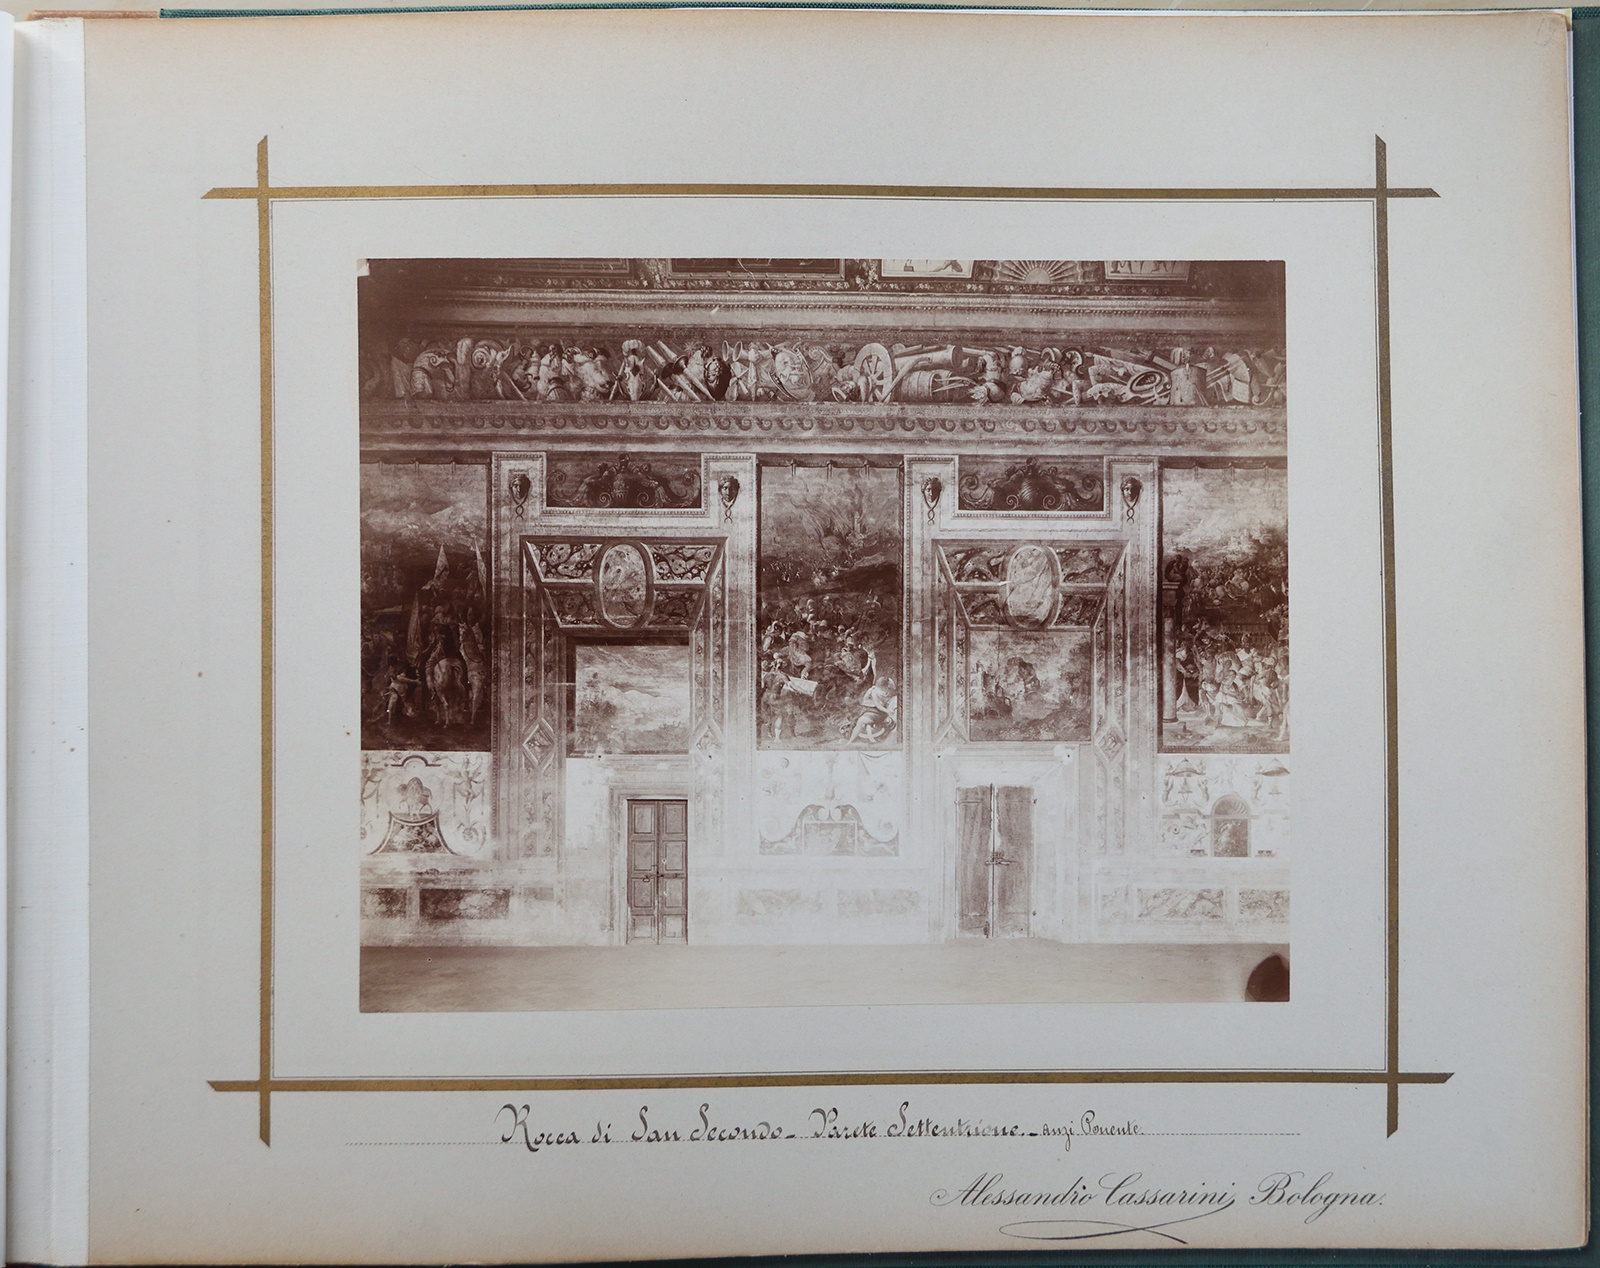 Rocca di San Secondo - Parete Settentrione. - anzi Ponente.
Alessandro Cassarini, Bologna.